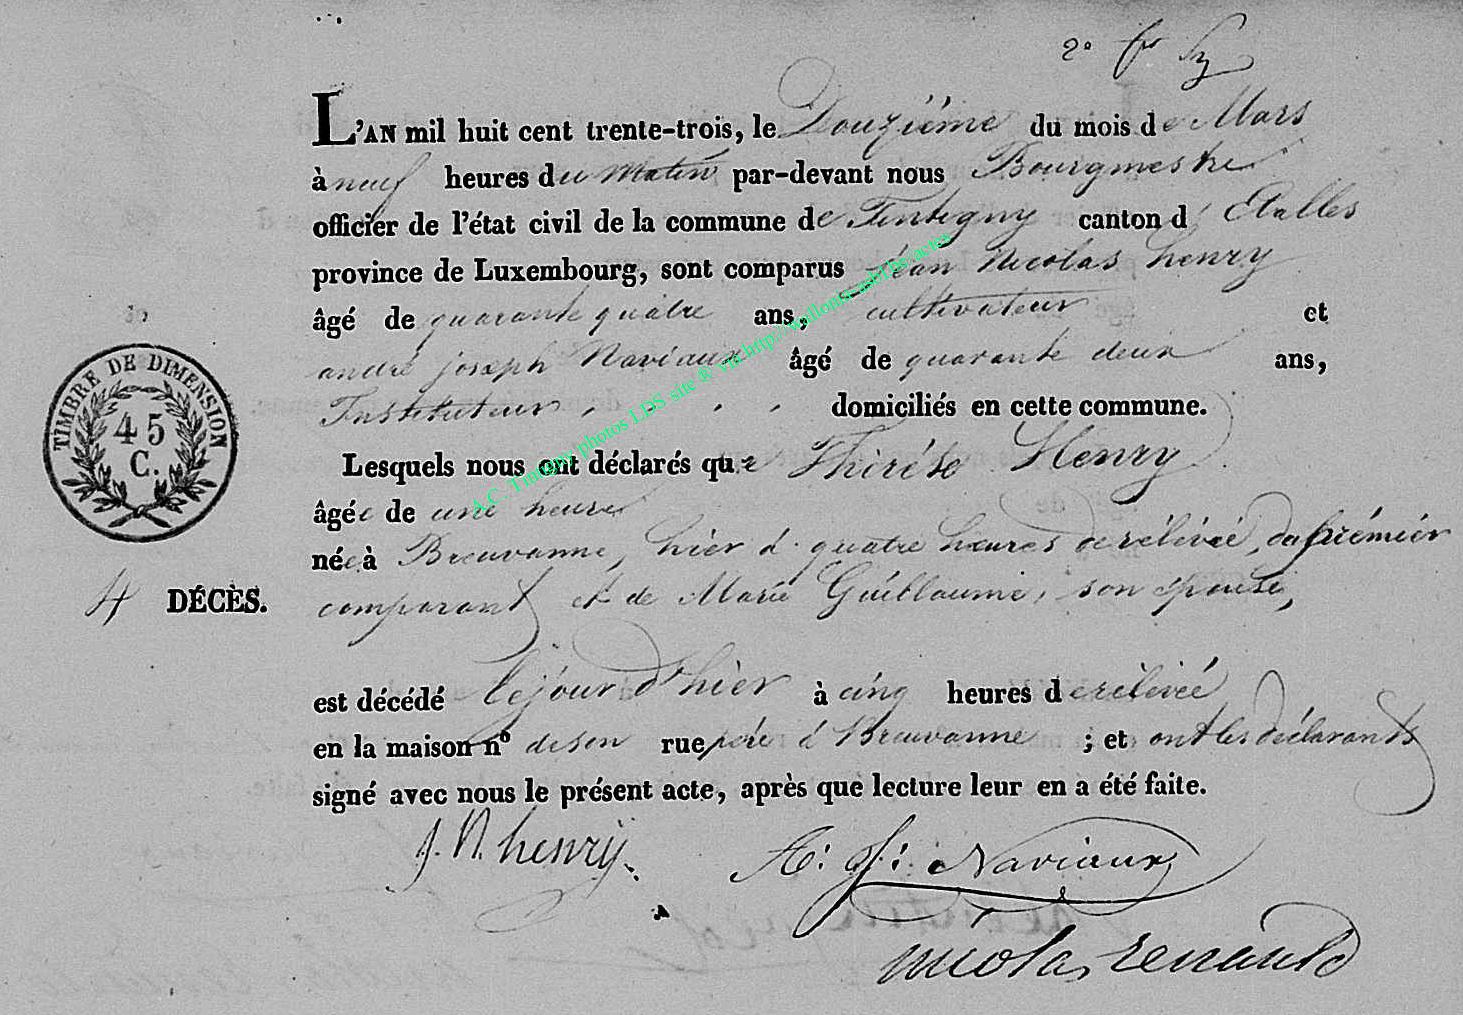 L'AN mil huit cent trente-trois, le Douzième du mois de Mars
à neuf heures du Matin par-devant nous Bourgmestre
officier de l'état civil de la commune de Tintigny canton d'Etalles
province de Luxembourg, sont comparus Jean Nicolas henry
âgé de quarante quatre ans, cultivateur et
andré joseph Naviaux âgé de quarante deux ans,
Instituteur, domiciliés en cette commune.
Lesquels nous ont déclarés que Thérése Henry
âgée de une heure
née à Breuvanne, hier à quatre heures de rélévée, du prémiér
comparant et de Marie Guillaume, son épouse,
4 DÉCÈS.
est décédé le jour d'hier à cinq heures de rélévée
en la maison nº de son rue pére à Breuvanne ; et ont les déclarants
signé avec nous le présent acte, après que lecture leur en a été faite.
J. N. henry.
A: J: Naviaux
nicolas renauld
TIMBRE DE DIMENSION
45
C.
A.C. Tintigny photos LDS site ® via http://wallonia-asbl.be actes